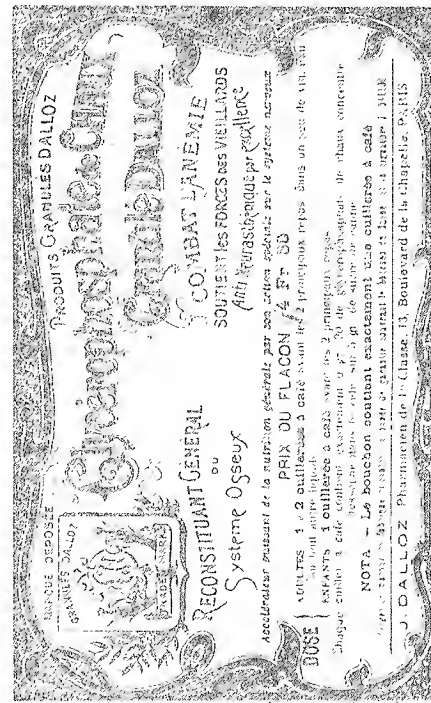 MARQUE DÉPOSÉE
GRANULES DALLOZ
TRADE MARK
PRODUITS GRANULÉS DALLOZ
Glycérophosphate de Chaux
Granulé DALLOZ
RECONSTITUANT GÉNÉRAL
DU
Système Osseux
COMBAT L'ANÉMIE
SOUTIENT les FORCES des VIEILLARDS
Anti Neurasthénique par excellence
Accélérateur puissant de la nutrition générale par son action spéciale sur le système nerveux
PRIX DU FLACON 4 Fr 50
DOSE
ADULTES 1 à 2 cuillerées à café avant les 2 principaux repas dans un peu de vin, eau
ou tout autre liquide
ENFANTS 1 cuillerée à café avant les 2 principaux repas
Chaque cuiller à café contient exactement de glycérophosphate de chaux
NOTA — Le bouchon contient exactement une cuillerée à café
J. DALLOZ Pharmacien de 1re Classe, 13, Boulevard de la Chapelle, PARIS